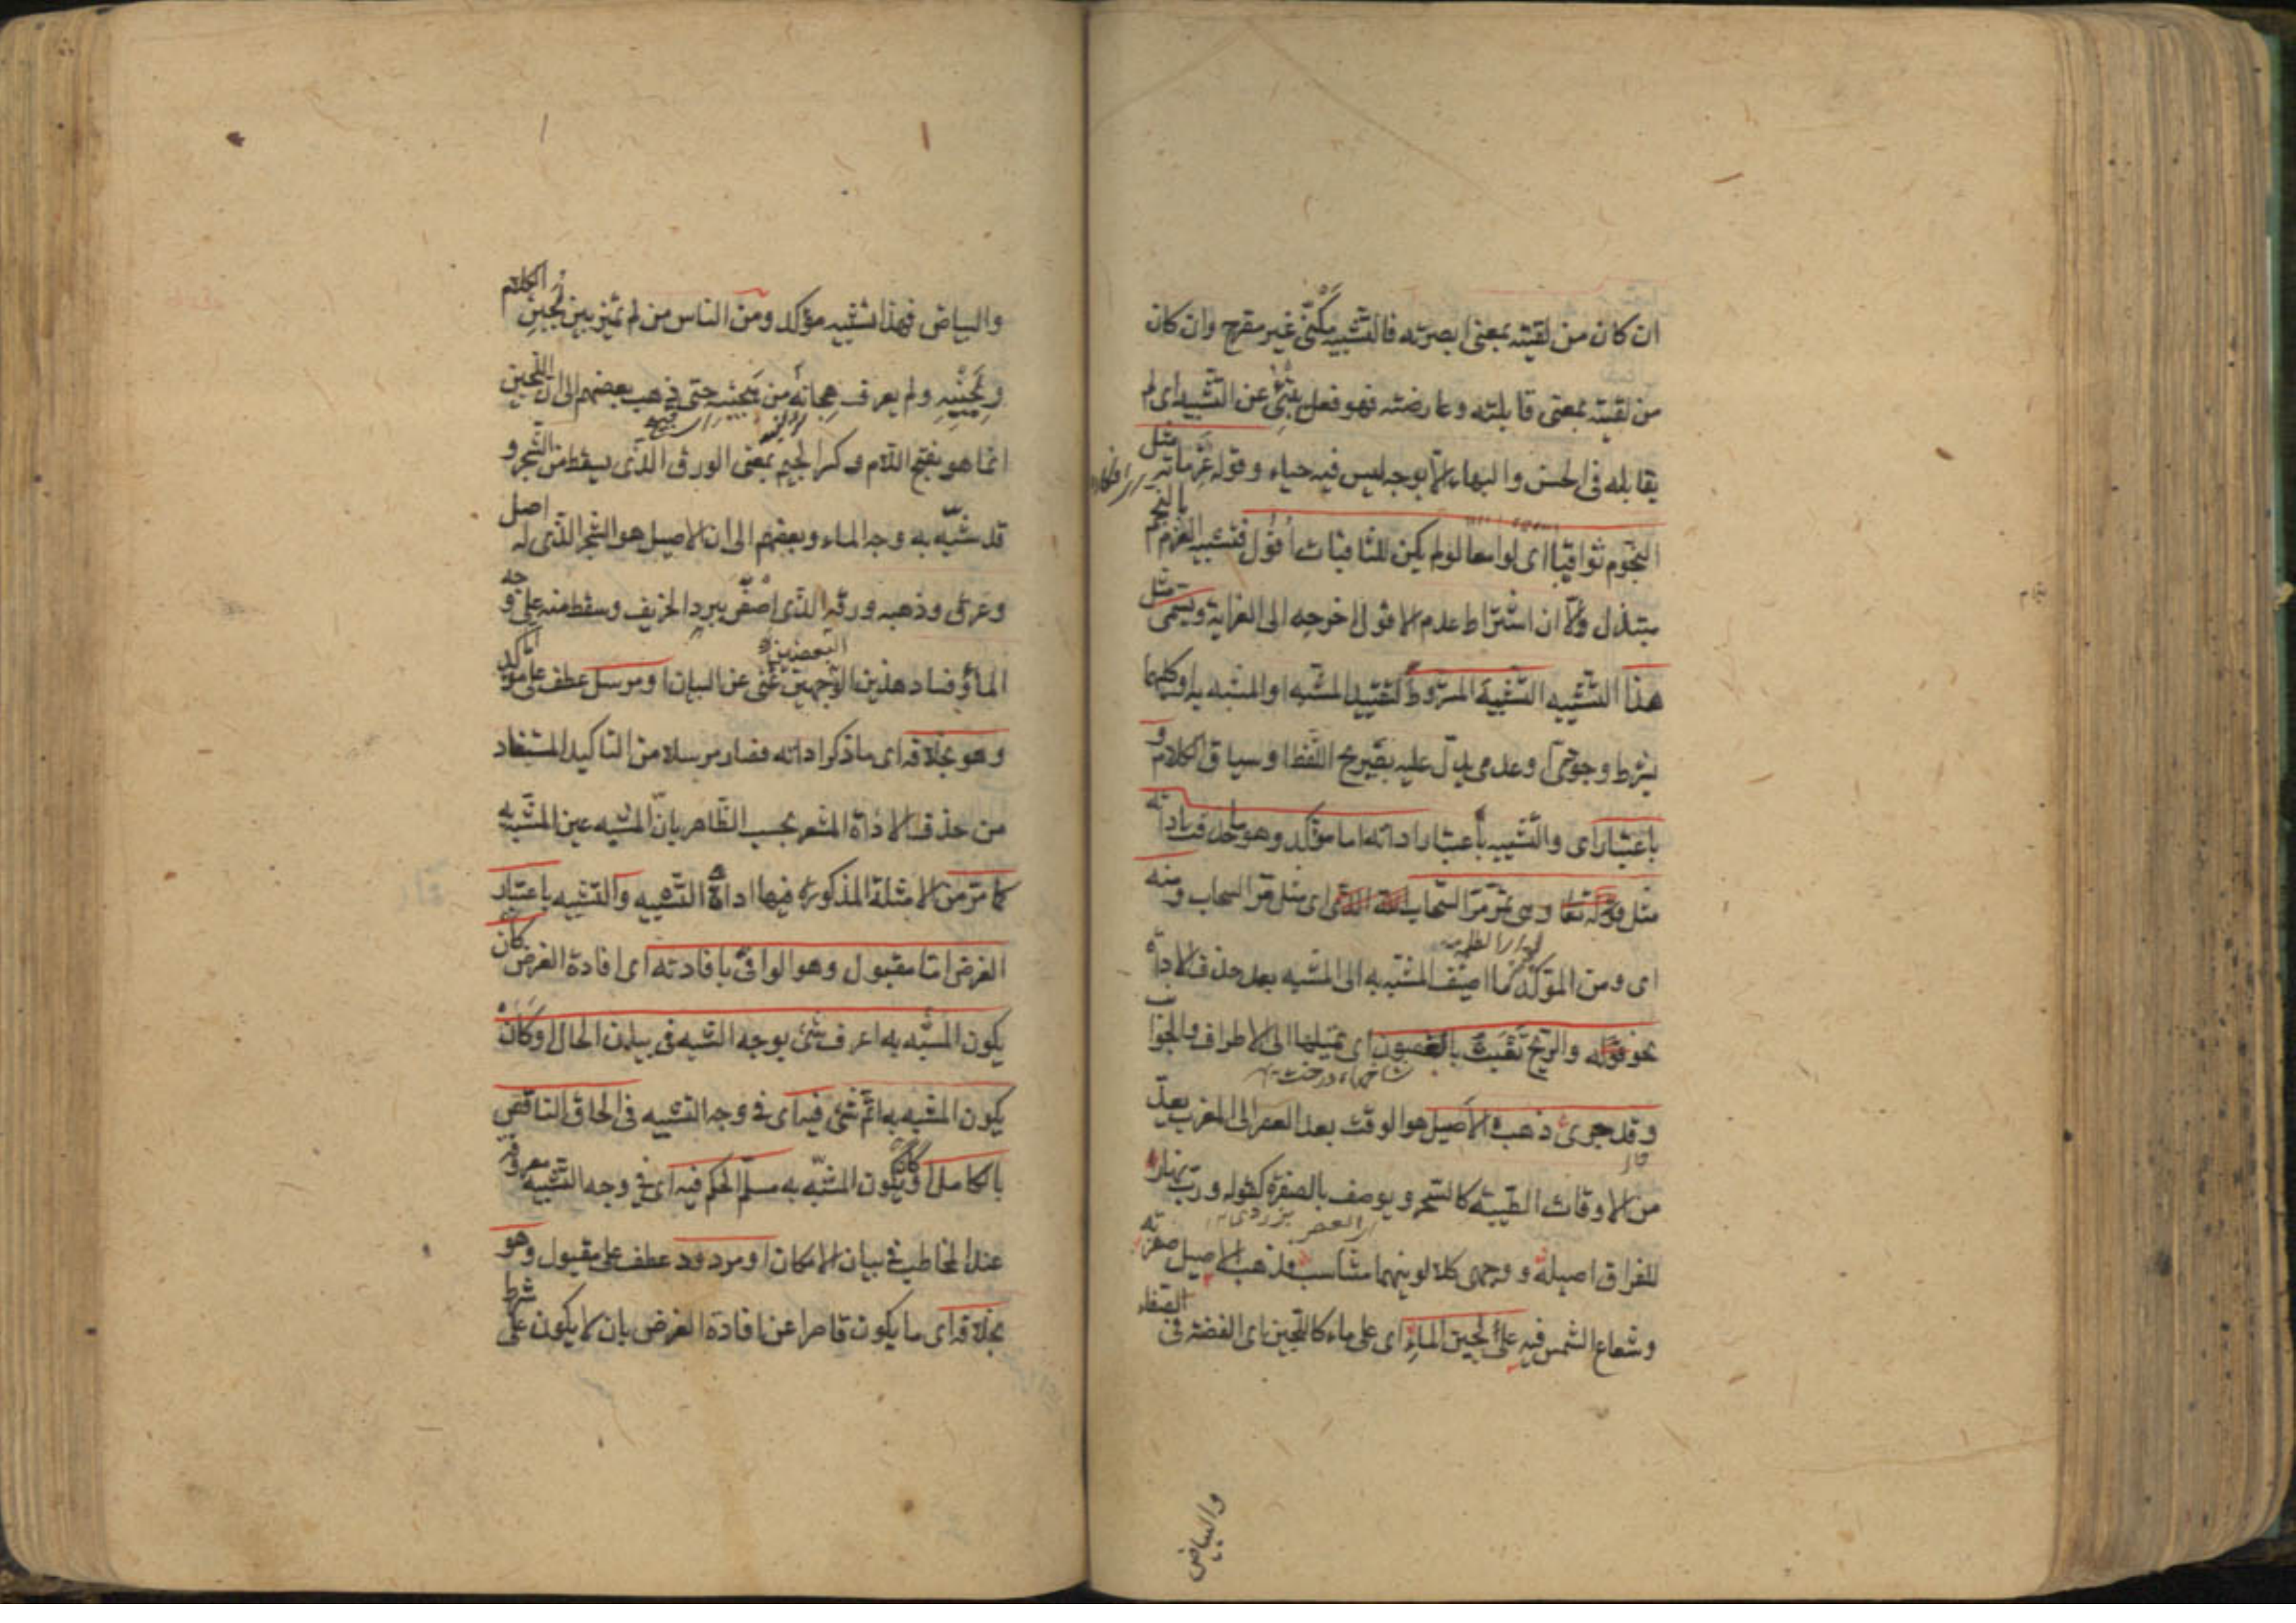 ان كان من لقيته بمعنى ابصرته فالتشبيه مكنى غير مصرح وان كان
من لقيته بمعنى قابلته وعارضته فهو فعل ينبئ عن التشبيه اى لم
يقابله فى الحسن والبهاء الا بوجه ليس فيه حياء وقوله عزماته مثل
النجوم ثواقبا اى لوامعا لو لم يكن للثاقبات أفول فتشبيه العزم بالنجم
مبتذل الا ان اشتراط عدم الافول اخرجه الى الغرابة ويسمى مثل
هذا التشبيه التشبيه المشروط لتقييد المشبه او المشبه به او كليهما
بشرط وجودى او عدمى يدل عليه بصريح اللفظ او سياق الكلام و
باعتبار اى والتشبيه باعتبار اداته اما مؤكد وهو ما حذفت اداته
مثل قوله تعا وهى تمر مر السحاب اى مثل مر السحاب ومنه
اى ومن المؤكد ما اضيف المشبه به الى المشبه بعد حذف الاداة
نحو قوله والريح تعبث بالغصون اى تميلها الى الاطراف والجوانب
شاخهاء درخت
وقد جرى ذهب الاصيل هو الوقت بعد العصر الى المغرب يعد
من الاوقات الطيبة كالسحر ويوصف بالصفرة كقوله ورب نهار
للفراق اصيله ووجهى كلا لونيهما متناسب فذهب الاصيل صفرته
وشعاع الشمس فيه على لجين الماء اى على ماء كاللجين اى الفضة فى الصفاء
والبياض
والبياض فهذا تشبيه مؤكد ومن الناس من لم يميز بين لجين الكلام
ولجينه ولم يعرف هجانه من هجينه حتى ذهب بعضهم الى ان اللجين
انما هو بفتح اللام وكسر الجيم بمعنى الورق الذى يسقط من الشجر و
قد شبه به وجه الماء وبعضهم الى ان الاصيل هو الشجر الذى له اصل
وعرق وذهبه ورقه الذى اصفر ببرد الخريف وسقط منه على وجه
الماء وفساد هذين الوجهين غنى عن البيان او مرسل عطف على مؤكد
وهو بخلافه اى ما ذكر اداته فصار مرسلا من التاكيد المستفاد
من حذف الاداة المشعر بحسب الظاهر بان المشبه عين المشبه به
كما مر من الامثلة المذكورة فيها اداة التشبيه والتشبيه باعتبار
الغرض اما مقبول وهو الوافى بافادته اى افادة الغرض كان
يكون المشبه به اعرف شئ بوجه الشبه فى بيان الحال او كان
يكون المشبه به اتم شئ فيه اى فى وجه التشبيه فى الحاق الناقص
بالكامل او كان يكون المشبه به مسلم الحكم فيه اى فى وجه التشبيه معروفه
عند المخاطب فى بيان الامكان او مردود عطف على مقبول وهو
بخلافه اى ما يكون قاصرا عن افادة الغرض بان لا يكون على شرط